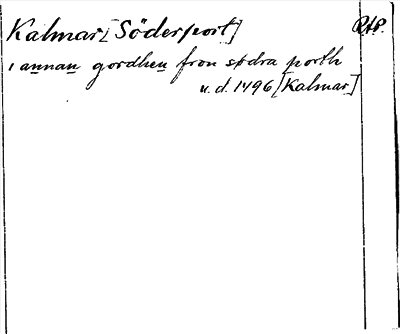 Kalmar [Söderport] RAP.
i annan gordhen fron sødra porth
u.d. 1496 [Kalmar]